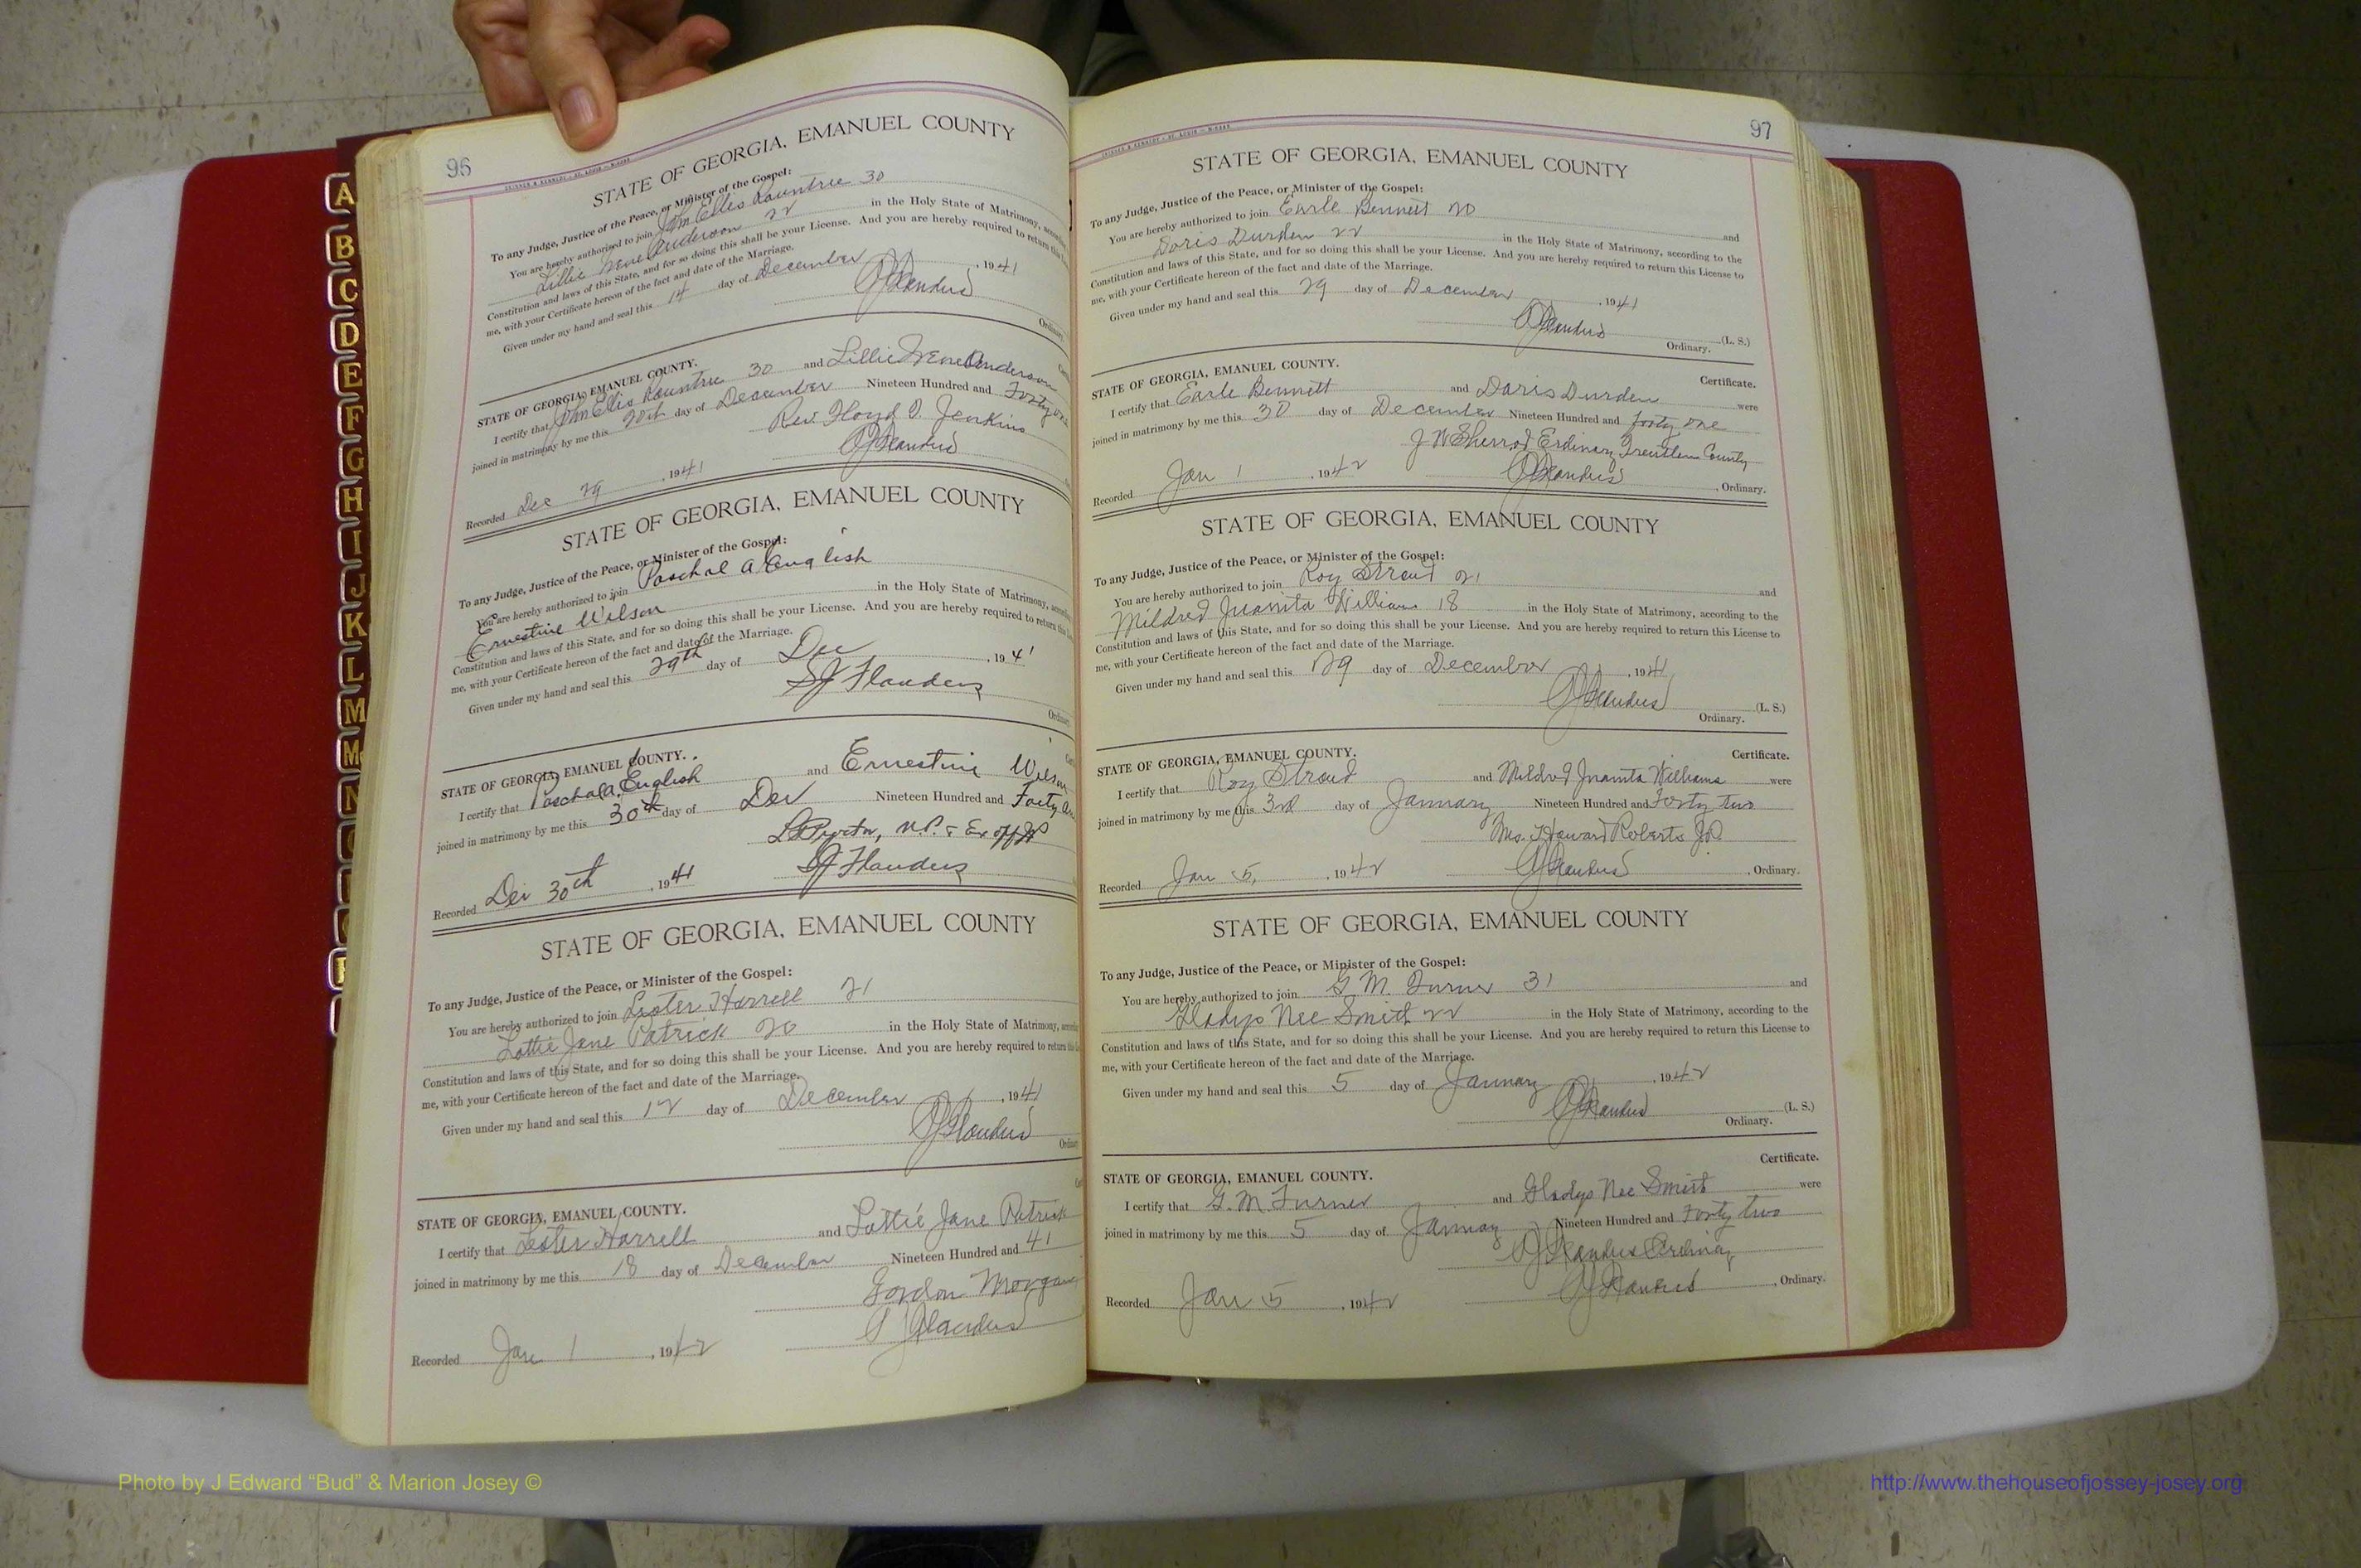 96
STATE OF GEORGIA, EMANUEL COUNTY
To any Judge, Justice of the Peace, or Minister of the Gospel:
You are hereby authorized to join John Ellis Rountree 30
Lillie Irene Anderson 22 in the Holy State of Matrimony,
Constitution and laws of this State, and for so doing this shall be your License. And you are hereby required to return this
me, with your Certificate hereon of the fact and date of the Marriage.
Given under my hand and seal this 14 day of December, 1941
Flanders
Ordinary
STATE OF GEORGIA, EMANUEL COUNTY.
I certify that John Ellis Rountree 30 and Lillie Irene Anderson
joined in matrimony by me this 20th day of December Nineteen Hundred and Forty one
Rev. Floyd Jenkins
Flanders
Recorded Dec 29, 1941
STATE OF GEORGIA, EMANUEL COUNTY
To any Judge, Justice of the Peace, or Minister of the Gospel:
You are hereby authorized to join Paschal A English
Ernestine Wilson in the Holy State of Matrimony,
Constitution and laws of this State, and for so doing this shall be your License. And you are hereby required to return this
me, with your Certificate hereon of the fact and date of the Marriage.
Given under my hand and seal this 29th day of Dec, 1941
Flanders
Ordinary
STATE OF GEORGIA, EMANUEL COUNTY.
I certify that Paschal A. English and Ernestine Wilson
joined in matrimony by me this 30th day of Dec Nineteen Hundred and Forty
N.P. & Ex off JP
Flanders
Recorded Dec 30th, 1941
STATE OF GEORGIA, EMANUEL COUNTY
To any Judge, Justice of the Peace, or Minister of the Gospel:
You are hereby authorized to join Lester Harrell 21
Lottie Jane Patrick 20 in the Holy State of Matrimony,
Constitution and laws of this State, and for so doing this shall be your License. And you are hereby required to return this
me, with your Certificate hereon of the fact and date of the Marriage.
Given under my hand and seal this 12 day of December, 1941
Flanders
Ordinary
STATE OF GEORGIA, EMANUEL COUNTY.
I certify that Lester Harrell and Lottie Jane Patrick
joined in matrimony by me this 18 day of December Nineteen Hundred and 41
Gordon Morgan
Flanders
Recorded Jan 1, 1942
97
STATE OF GEORGIA, EMANUEL COUNTY
To any Judge, Justice of the Peace, or Minister of the Gospel:
You are hereby authorized to join Earle Bennett 20 and
Doris Durden 22 in the Holy State of Matrimony, according to the
Constitution and laws of this State, and for so doing this shall be your License. And you are hereby required to return this License to
me, with your Certificate hereon of the fact and date of the Marriage.
Given under my hand and seal this 29 day of December, 1941
Flanders (L. S.)
Ordinary.
STATE OF GEORGIA, EMANUEL COUNTY. Certificate.
I certify that Earle Bennett and Doris Durden were
joined in matrimony by me this 30 day of December Nineteen Hundred and forty one
J W Sherrod Ordinary Treutlen County
Recorded Jan 1, 1942 Flanders, Ordinary.
STATE OF GEORGIA, EMANUEL COUNTY
To any Judge, Justice of the Peace, or Minister of the Gospel:
You are hereby authorized to join Roy Stroud 21 and
Mildred Juanita Williams 18 in the Holy State of Matrimony, according to the
Constitution and laws of this State, and for so doing this shall be your License. And you are hereby required to return this License to
me, with your Certificate hereon of the fact and date of the Marriage.
Given under my hand and seal this 29 day of December, 1941
Flanders (L. S.)
Ordinary.
STATE OF GEORGIA, EMANUEL COUNTY. Certificate.
I certify that Roy Stroud and Mildred Juanita Williams were
joined in matrimony by me this 3rd day of January Nineteen Hundred and Forty two
Howard Roberts J.P.
Recorded Jan 5, 1942 Flanders, Ordinary.
STATE OF GEORGIA, EMANUEL COUNTY
To any Judge, Justice of the Peace, or Minister of the Gospel:
You are hereby authorized to join G. M. Turner 31 and
Gladys Nee Smith 22 in the Holy State of Matrimony, according to the
Constitution and laws of this State, and for so doing this shall be your License. And you are hereby required to return this License to
me, with your Certificate hereon of the fact and date of the Marriage.
Given under my hand and seal this 5 day of January, 1942
Flanders (L. S.)
Ordinary.
STATE OF GEORGIA, EMANUEL COUNTY. Certificate.
I certify that G. M Turner and Gladys Nee Smith were
joined in matrimony by me this 5 day of January Nineteen Hundred and Forty two
Flanders Ordinary
Recorded Jan 5, 1942 Flanders, Ordinary.
A
B
C
D
E
F
G
H
I
J
K
L
M
Mc
N
O
Photo by J Edward “Bud” & Marion Josey ©
http://www.thehouseofjossey-josey.org